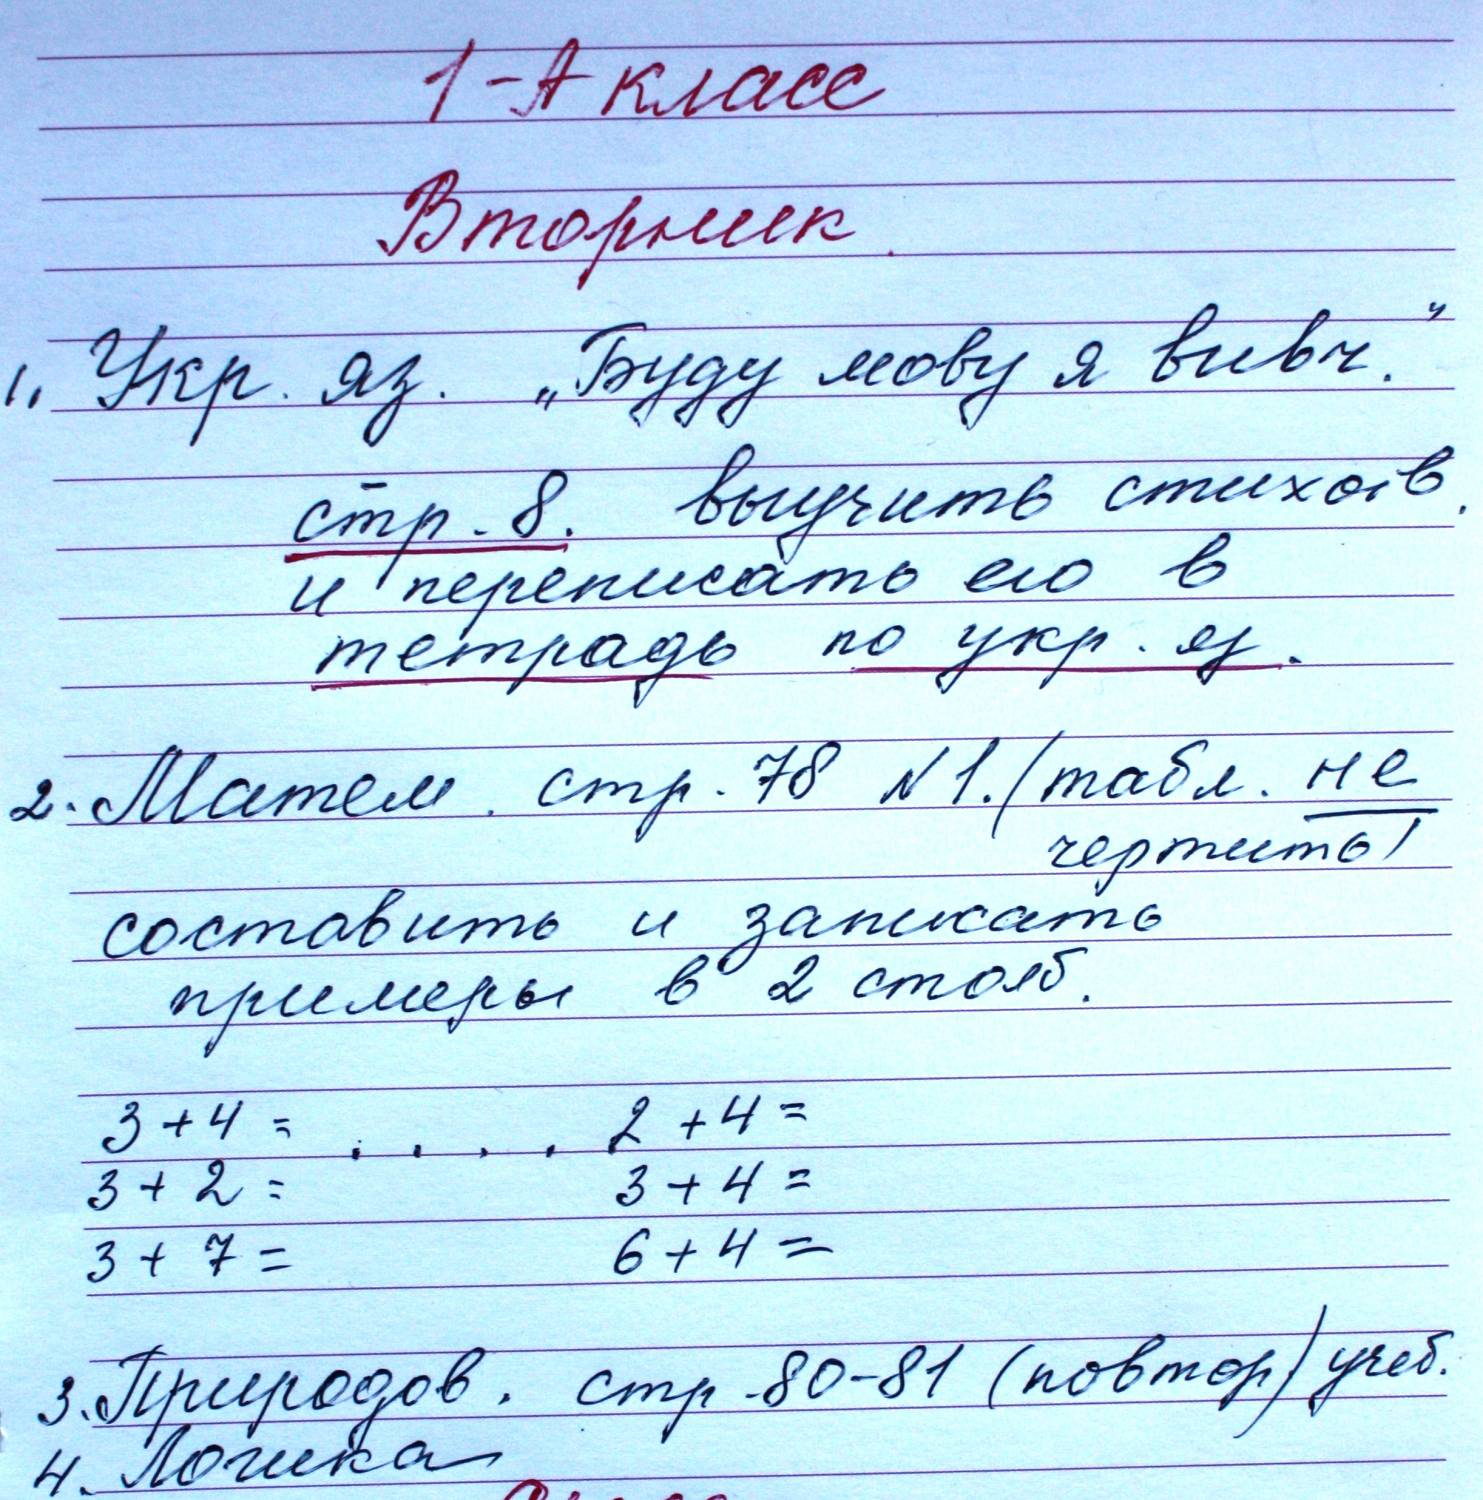 1-А класс
Вторник.
1. Укр. яз. „Буду мову я вивч."
стр. 8. выучить стихотв.
и переписать его в
тетрадь по укр. яз.
2. Матем. стр. 78 №1. (табл. не
чертить)
составить и записать
примеры в 2 столб.
3+4= . . . . 2+4=
3+2= 3+4=
3+7= 6+4=
3. Природов. стр. 80-81 (повтор) учеб.
4. Логика